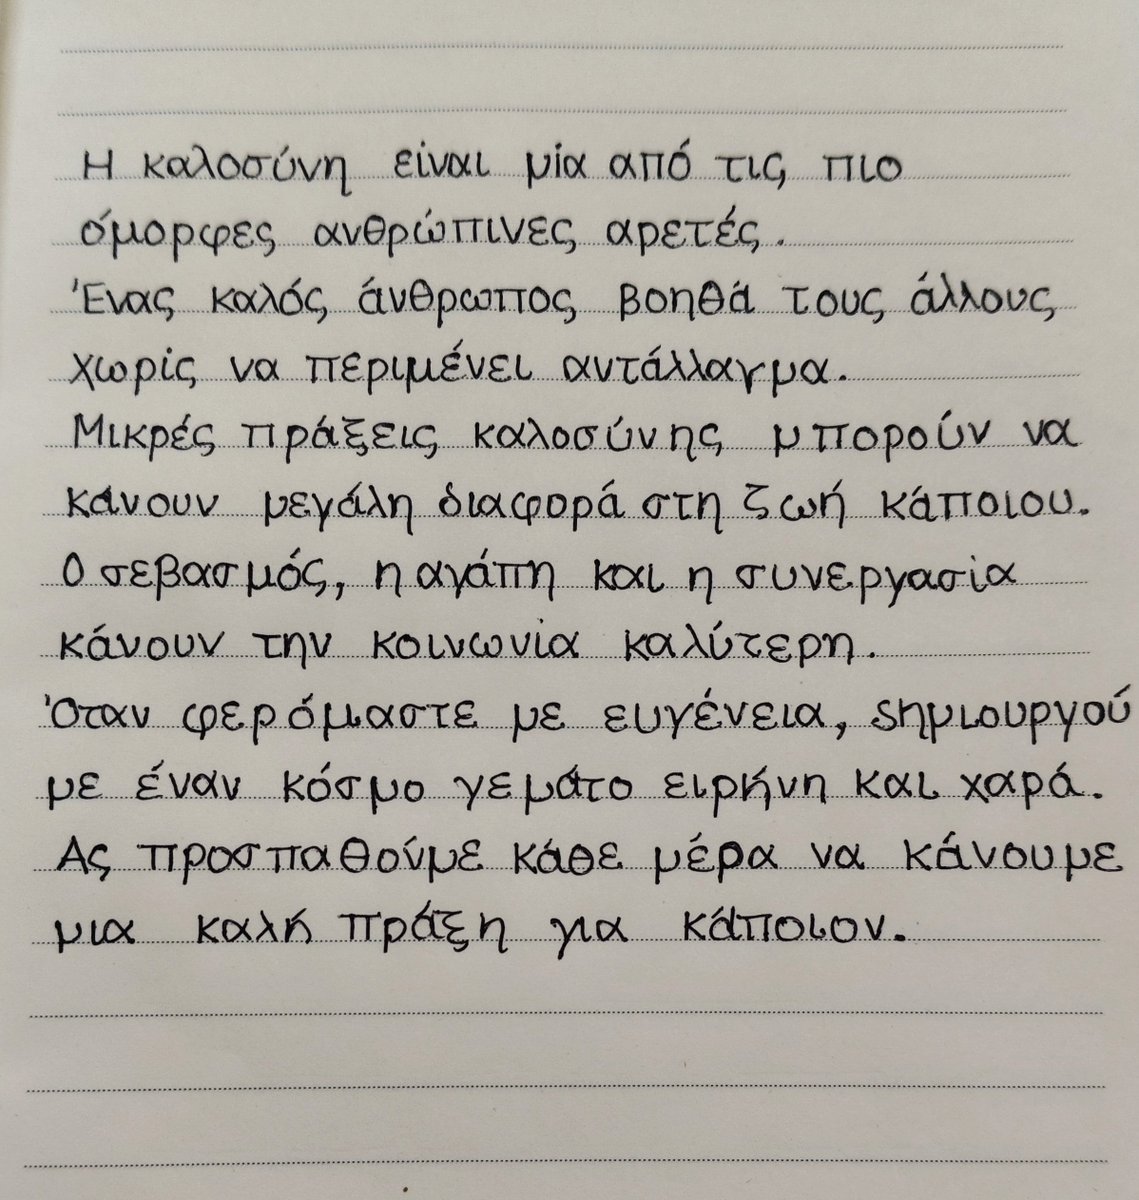 Η καλοσύνη είναι μία από τις πιο
όμορφες ανθρώπινες αρετές.
Ένας καλός άνθρωπος βοηθά τους άλλους
χωρίς να περιμένει αντάλλαγμα.
Μικρές πράξεις καλοσύνης μπορούν να
κάνουν μεγάλη διαφορά στη ζωή κάποιου.
Ο σεβασμός, η αγάπη και η συνεργασία
κάνουν την κοινωνία καλύτερη.
Όταν φερόμαστε με ευγένεια, δημιουργού
με έναν κόσμο γεμάτο ειρήνη και χαρά.
Ας προσπαθούμε κάθε μέρα να κάνουμε
μια καλή πράξη για κάποιον.